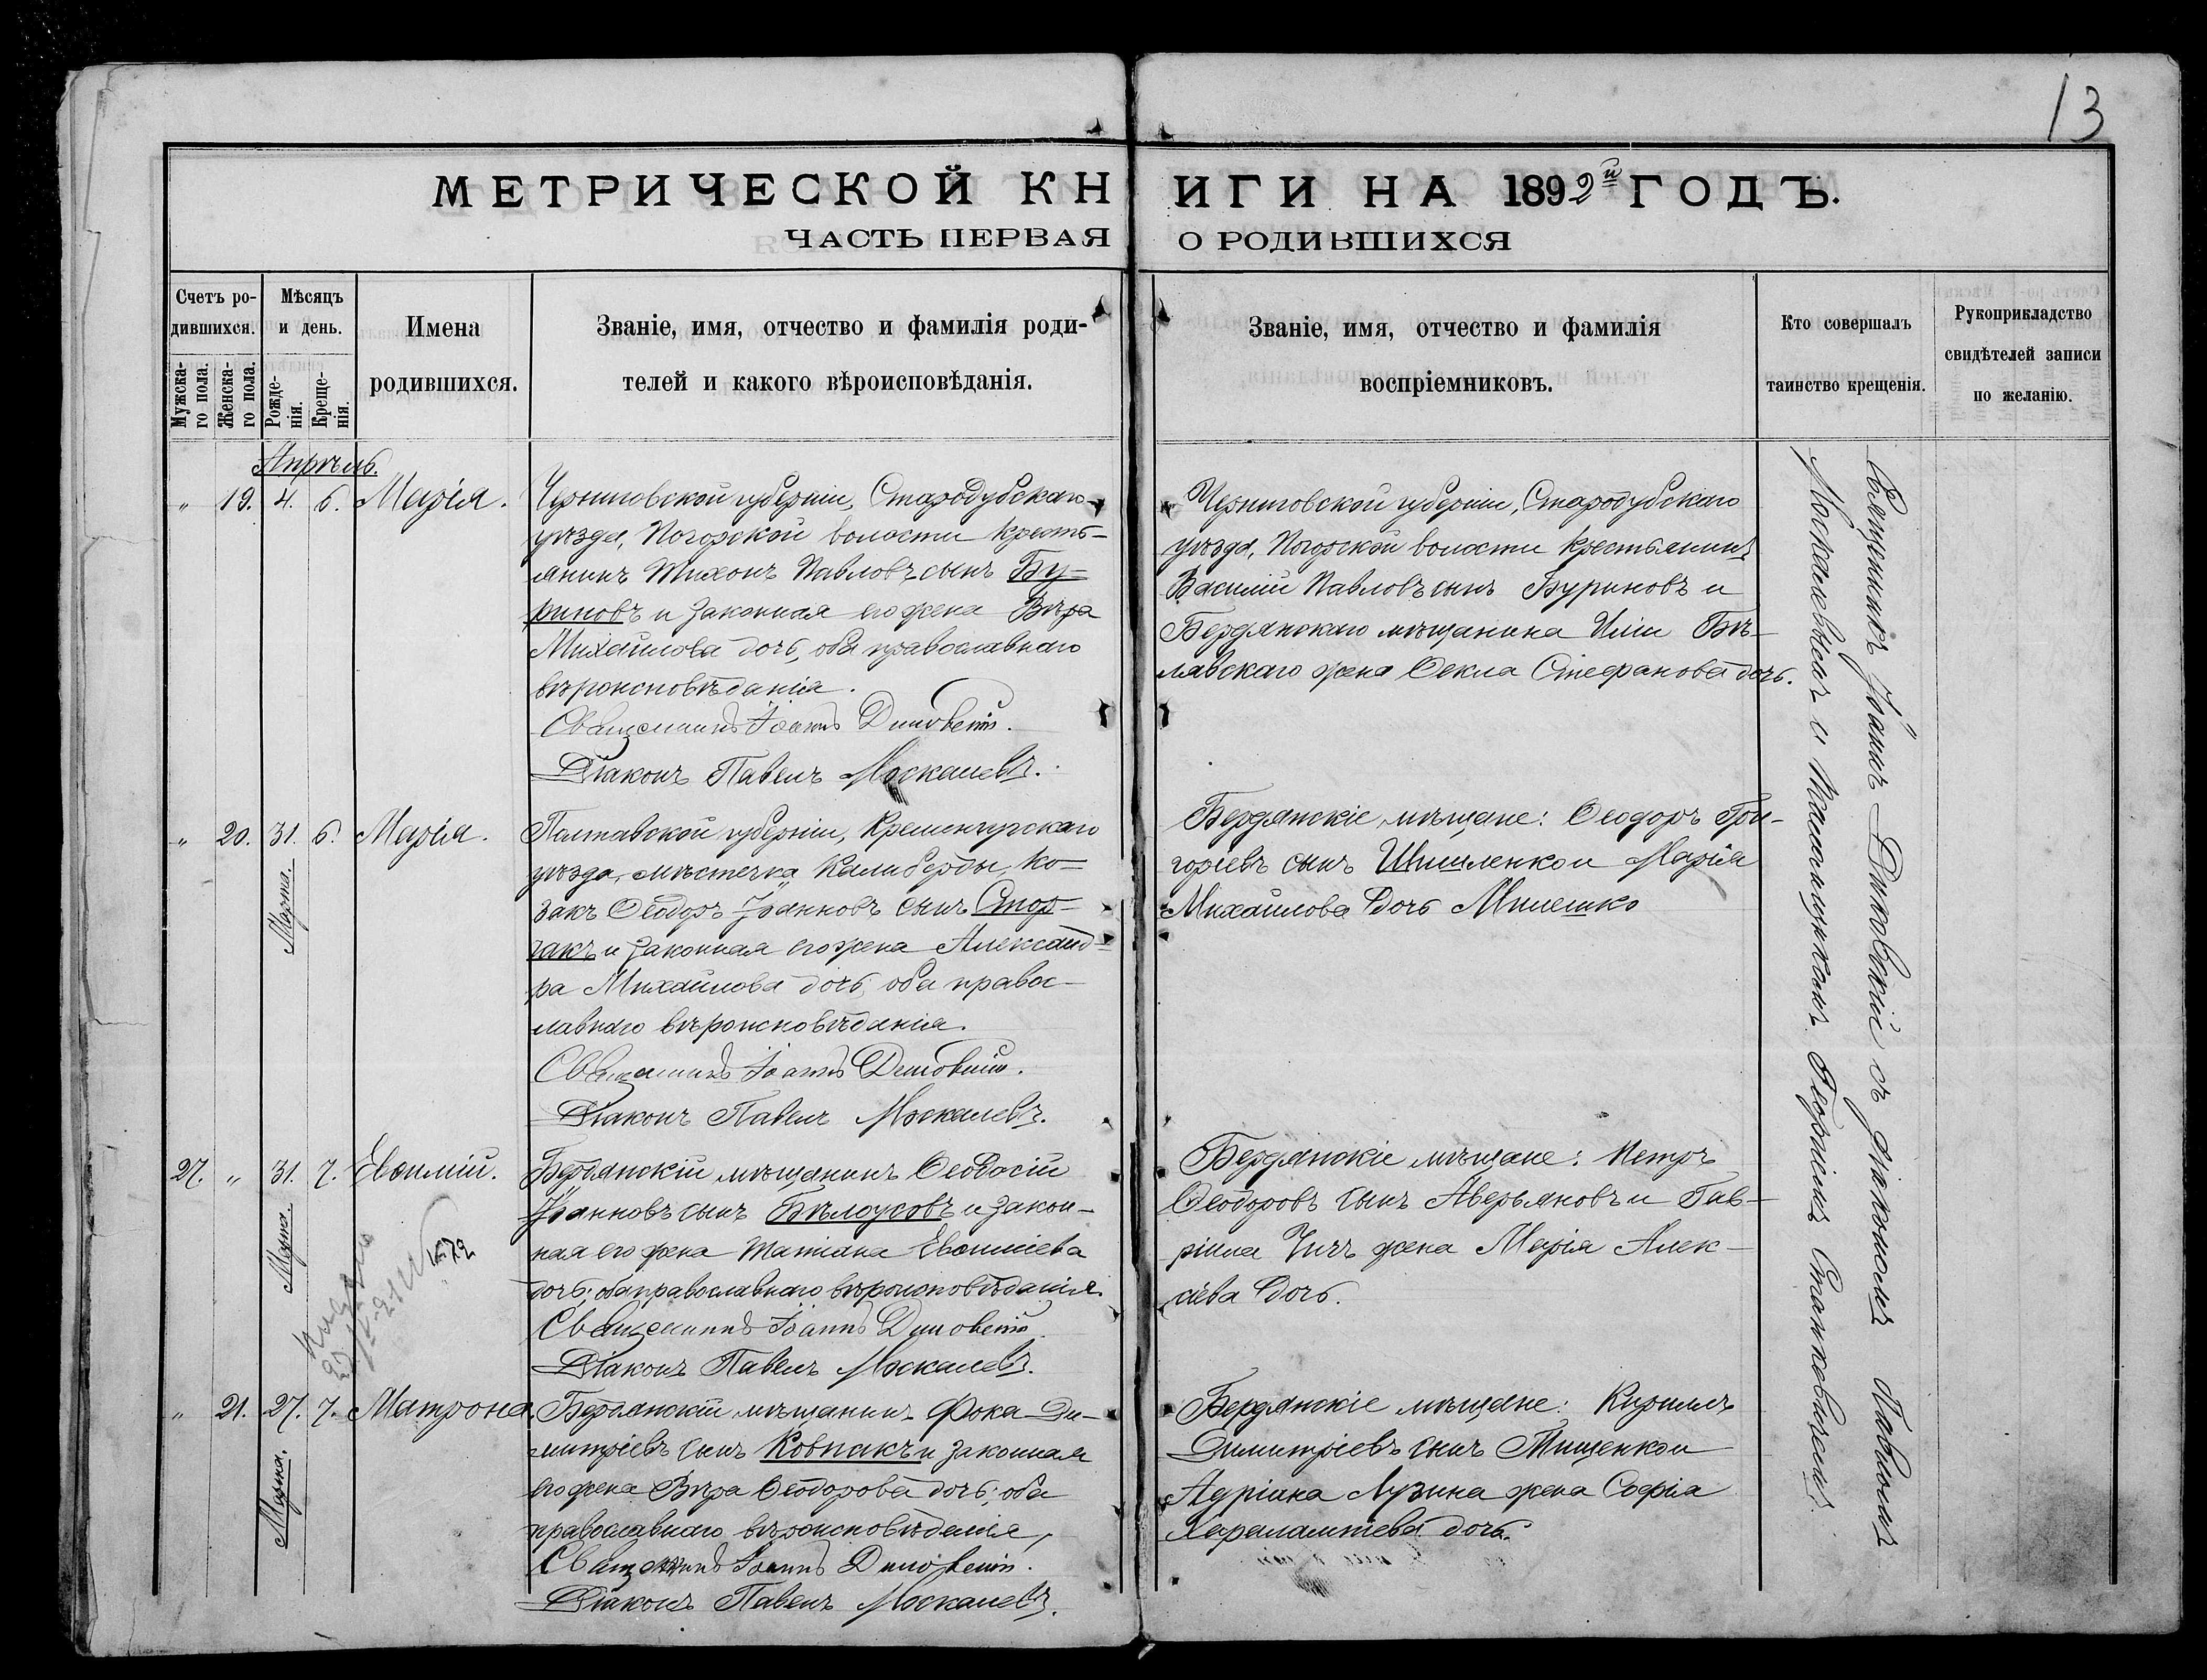 13
МЕТРИЧЕСКОЙ КНИГИ НА 1892й ГОДЪ.
ЧАСТЬ ПЕРВАЯ О РОДИВШИХСЯ
Счетъ ро-
дившихся.
Мужска-
го пола.
Женска-
го пола.
Мѣсяцъ
и день.
Рожде-
нія.
Креще-
нія.
Имена
родившихся.
Званіе, имя, отчество и фамилія роди-
телей и какого вѣроисповѣданія.
Званіе, имя, отчество и фамилія
воспріемниковъ.
Кто совершалъ
таинство крещенія.
Рукоприкладство
свидѣтелей записи
по желанію.
Апрѣль.
" 19. 4. 6. Марія.
Черниговской губерніи, Стародубскаго
уѣзда, Погорской волости кресть-
янинъ Тихонъ Павловъ сынъ Бу-
риновъ и законная его жена Вѣра
Михайлова дочь, оба православнаго
вѣроисповѣданія.
Священникъ Іоаннъ
Діаконъ Павелъ Москалевъ.
Черниговской губерніи, Стародубскаго
уѣзда, Погорской волости крестьянинъ
Василій Павловъ сынъ Буриновъ и
Бердянскаго мѣщанина Иліи Бѣ-
лявскаго жена Ѳекла Стефанова дочь.
" 20. 31. 6. Марія.
Марта.
Полтавской губерніи, Кременчугскаго
уѣзда, мѣстечка Келиберды, ко-
закъ Ѳеодоръ Іоанновъ сынъ Стор-
чакъ и законная его жена Александ-
ра Михайлова дочь, оба правос-
лавнаго вѣроисповѣданія.
Священникъ Іоаннъ
Діаконъ Павелъ Москалевъ.
Бердянскіе мѣщане: Ѳеодоръ Гри-
горіевъ сынъ Шишленко и Марія
Михайлова дочь Милешко
27. " 31. 7. Евѳимій.
Марта.
Бердянскій мѣщанинъ Ѳеодосій
Іоанновъ сынъ Бѣлоусовъ и закон-
ная его жена Татіана Евѳиміева
дочь; оба православнаго вѣроисповѣданія.
Священникъ Іоаннъ
Діаконъ Павелъ Москалевъ.
Бердянскіе мѣщане: Петръ
Ѳеодоровъ сынъ Аверьяновъ и Гав-
ріила жена Марія Алек-
сіева дочь.
" 21. 27. 7. Матрона.
Марта.
Бердянскій мѣщанинъ Фока Ди-
митріевъ сынъ Ковпакъ и законная
его жена Вѣра Ѳеодорова дочь; оба
православнаго вѣроисповѣданія,
Священникъ Іоаннъ
Діаконъ Павелъ Москалевъ.
Бердянскіе мѣщане: Кириллъ
Димитріевъ сынъ Тищенко и
Адріана Лузина жена Софія
Харалампіева дочь.
Священникъ Іоаннъ съ діакономъ Павломъ
Москалевымъ и псаломщикомъ Георгіемъ Станковичемъ